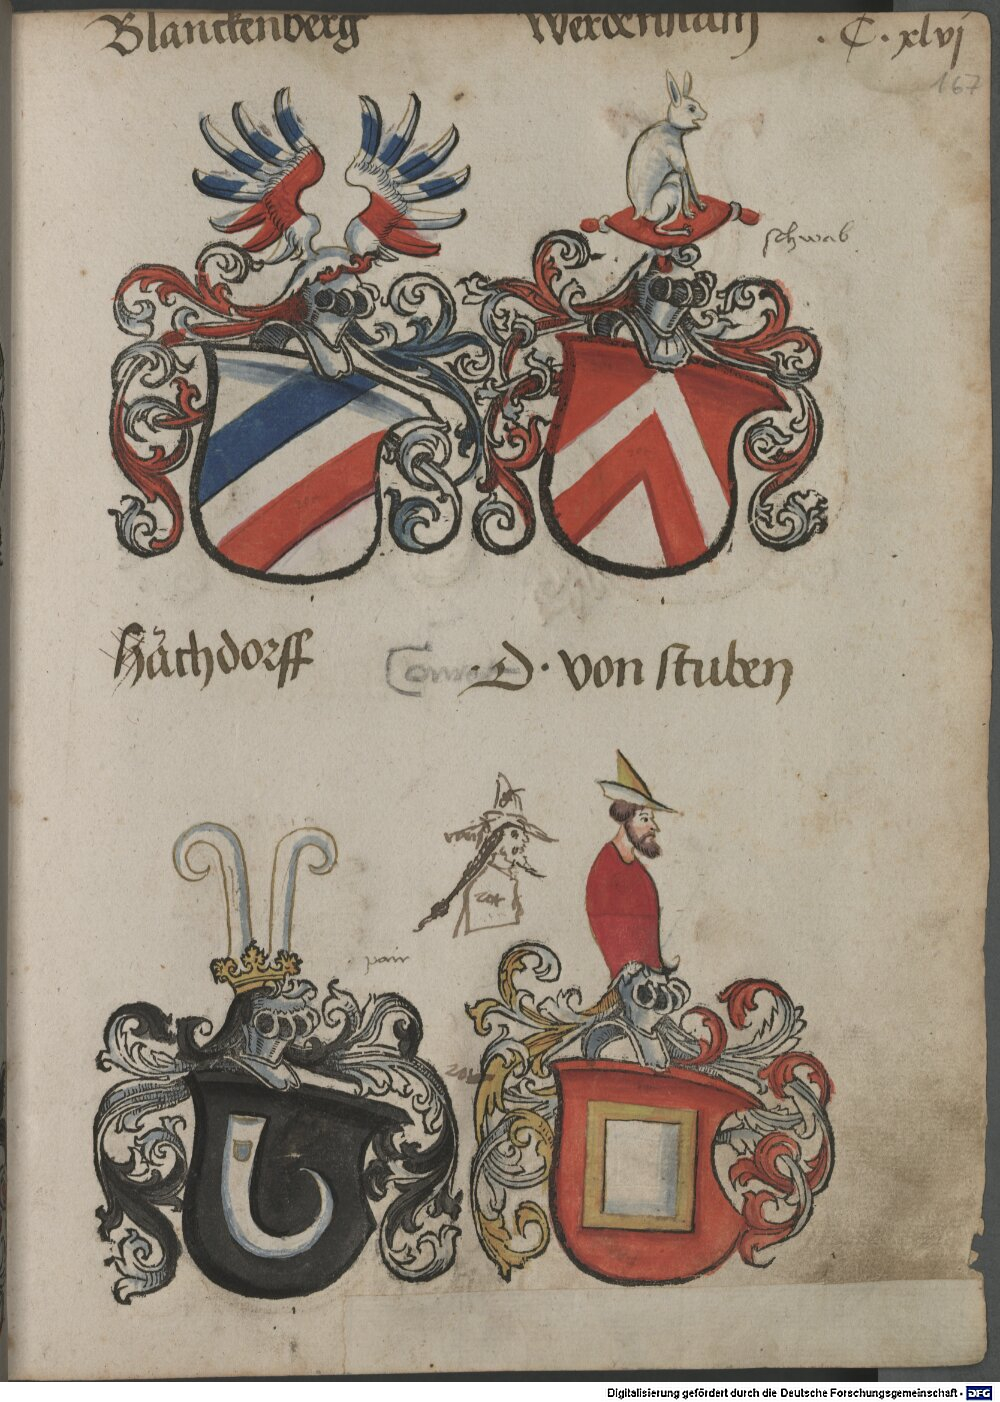 Blanckenberg
Werdenstain
· C · xlvj
167
schwab
Håchdorff
D · von stuben
pair
rot
Digitalisierung gefördert durch die Deutsche Forschungsgemeinschaft - DFG